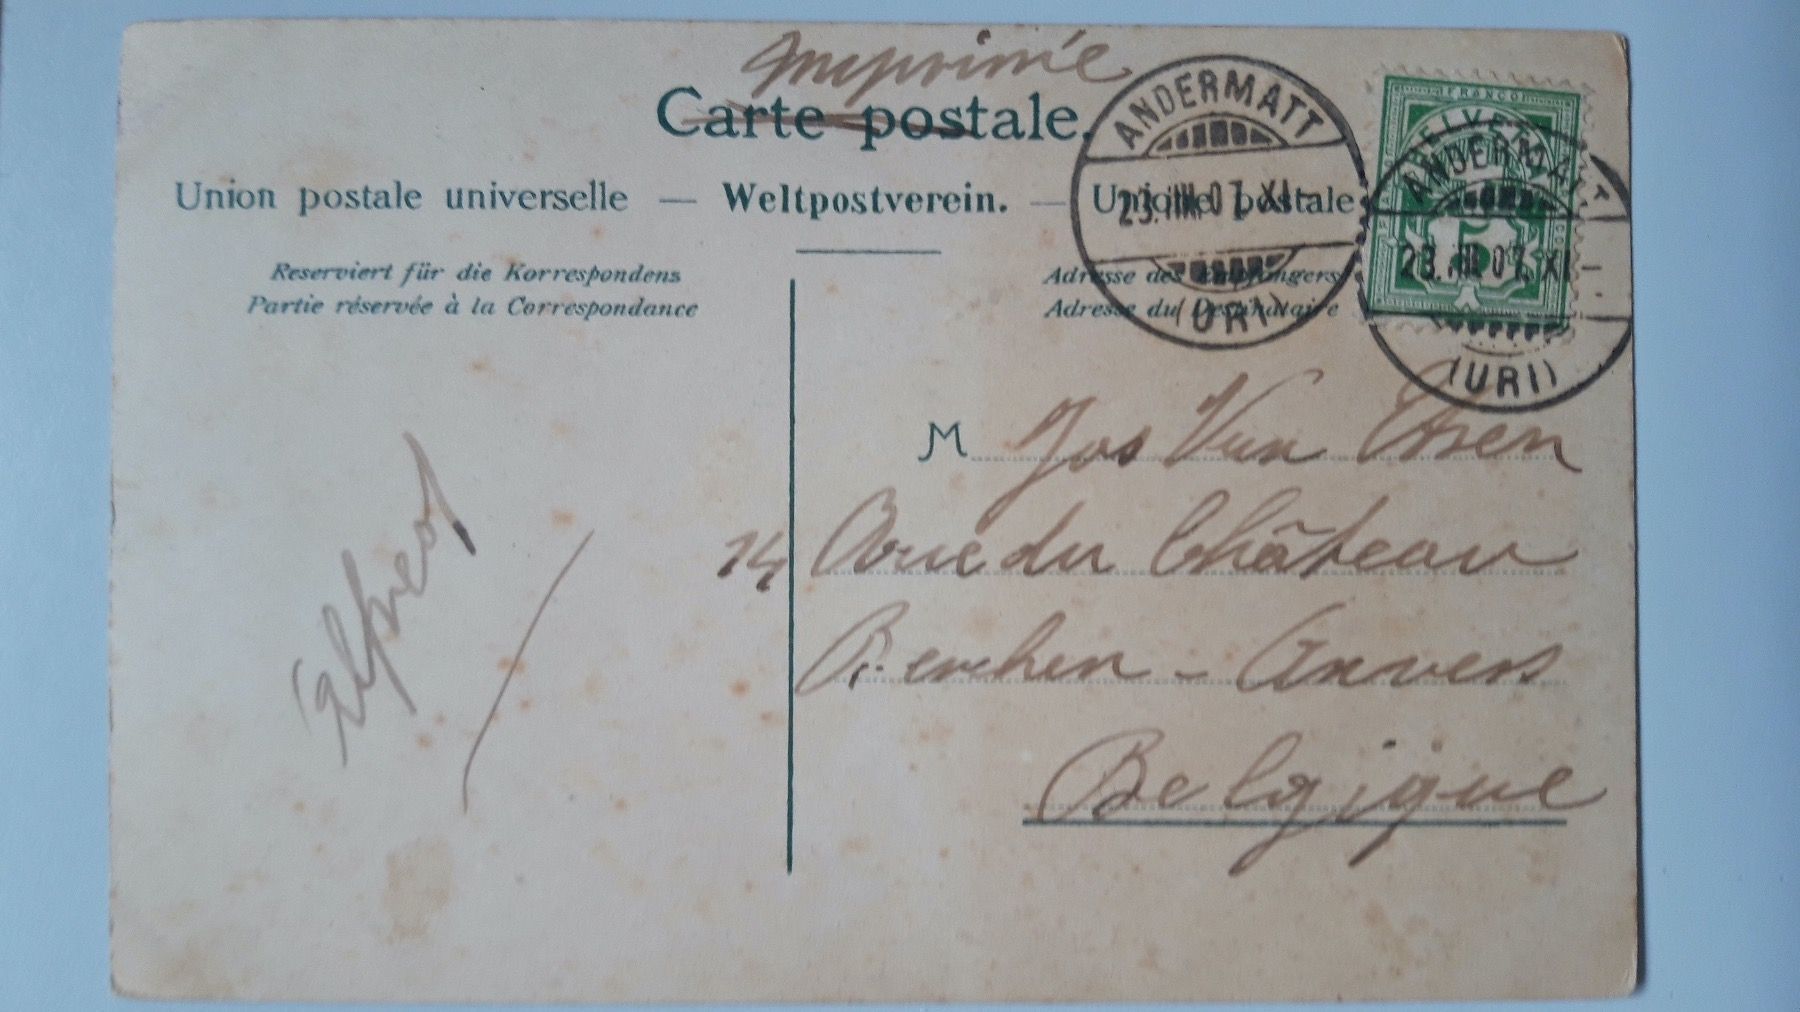 Imprimé
Carte postale.
Union postale universelle — Weltpostverein. — Unione postale
ANDERMATT
23. VIII 07. XI-
(URI)
HELVETIA
FRANCO
5
ANDERMATT
23. VIII 07. XI-
(URI)
Reserviert für die Korrespondens
Partie réservée à la Correspondance
Adresse des Empfängers
Adresse du Destinataire
M Jos Van
14 Rue du Château
Berchen - Anvers
Belgique
Alfred